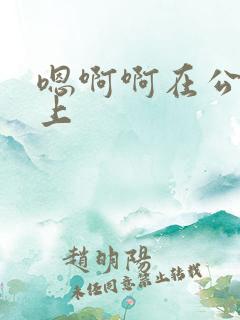 嗯啊啊在公
上
趙明陽
未任同意禁止转载